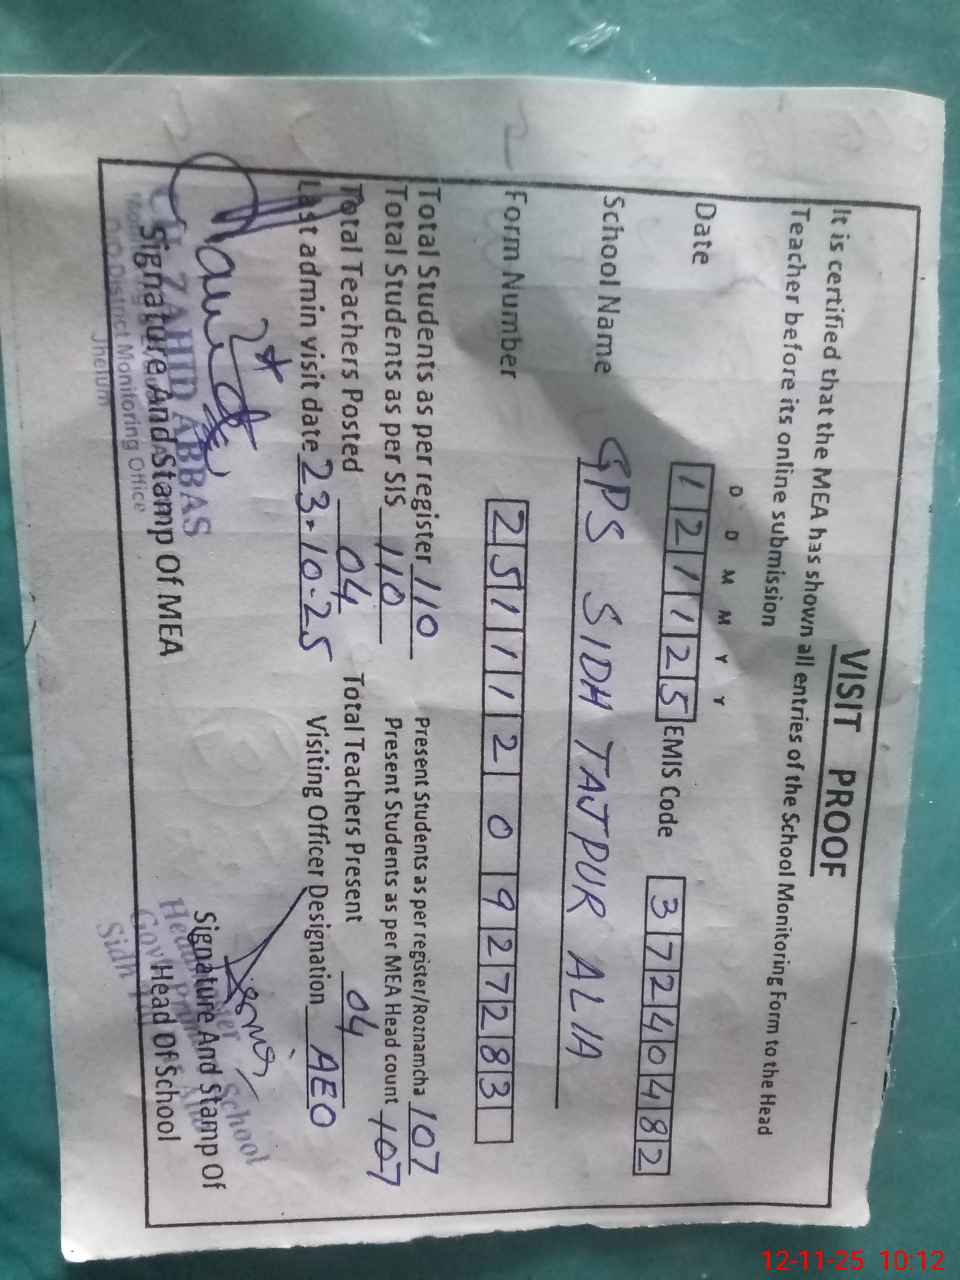 VISIT PROOF
It is certified that the MEA has shown all entries of the School Monitoring Form to the Head
Teacher before its online submission
D D M M Y Y
Date 121125 EMIS Code 37240482
School Name GPS SIDH TAJPUR ALIA
Form Number 2511120927283
Total Students as per register 110 Present Students as per register/Roznamcha 107
Total Students as per SIS 110 Present Students as per MEA Head count 107
Total Teachers Posted 04 Total Teachers Present 04
Last admin visit date 23-10-25 Visiting Officer Designation AEO
ZAHID ABBAS
Signature And Stamp Of MEA
District Monitoring Office
Jhelum
Signature And Stamp Of
Head Of School
School
Sidh
12-11-25 10:12